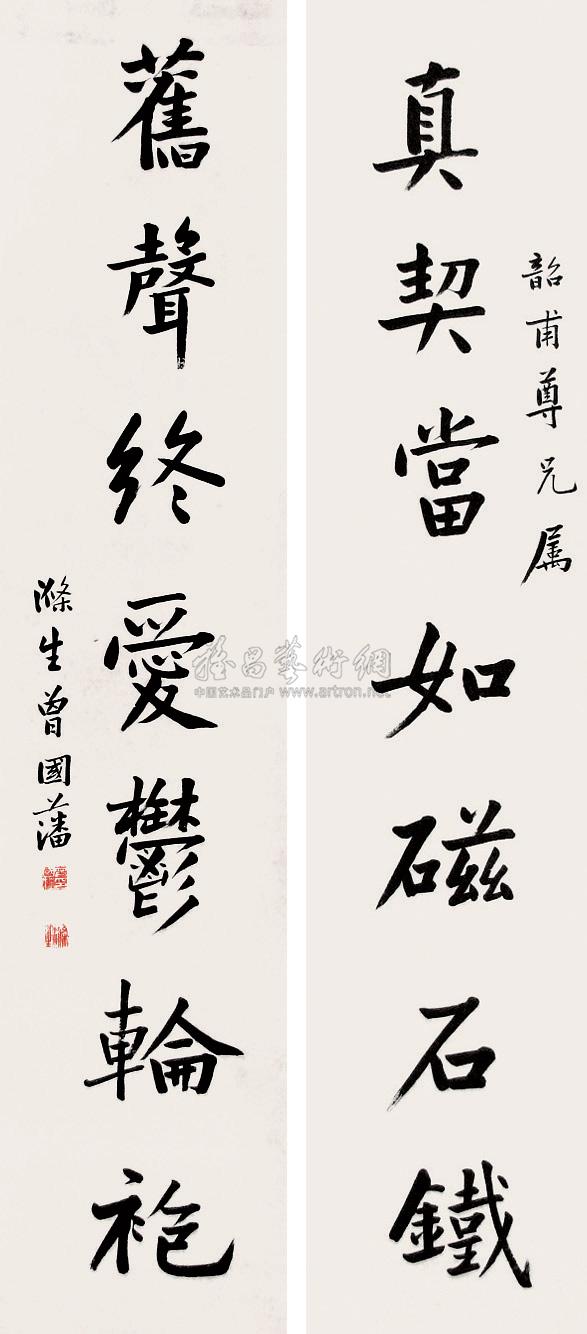 韶甫尊兄属
真契當如磁石鐵
舊聲終愛鬱輪袍
滌生曾國藩
雅昌藝術網
中国艺术品门户 www.artron.net